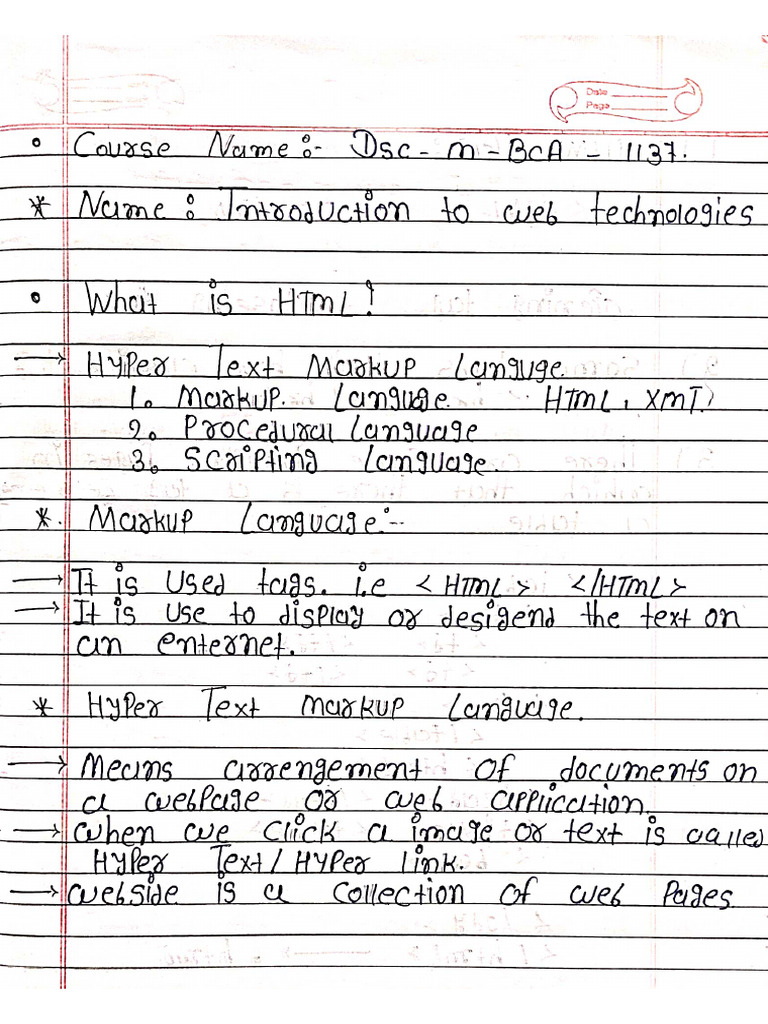 Date
Page
• Course Name :- Dsc - m - BCA - 1137.
* Name : Introduction to web technologies
• What is HTML?
→ Hyper Text Markup Languge
1. Markup. Language. HTML, XML)
2. Procedural Language
3. Scripting Language
*. Markup Language :-
→ It is Used tags. i.e <HTML> </HTML>
→ It is use to display or desigend the text on
an enternet.
* Hyper Text Markup Language.
→ Means arrengement of documents on
a webpage or web application.
→ when we click a image or text is called
Hyper Text/Hyper link.
→ webside is a collection of web pages